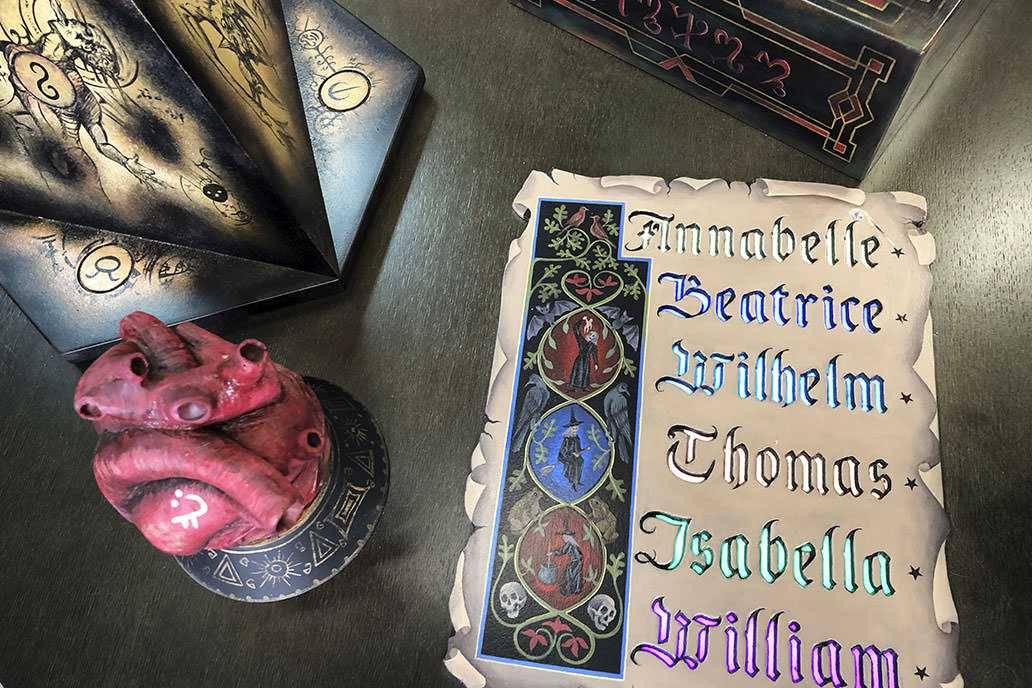 Annabelle
Beatrice
Wilhelm
Thomas
Isabella
William